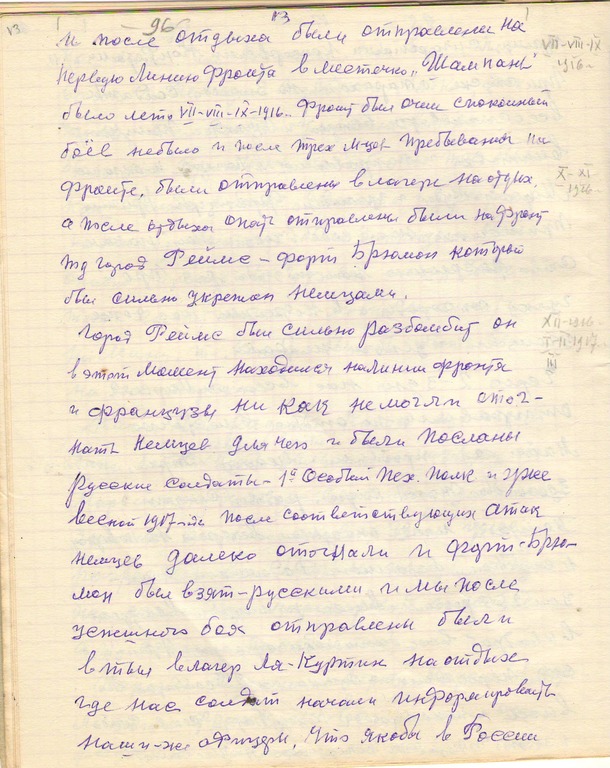 13
96
13
и после отдыха были отправлены на
первую линию фронта в местечко „Шампань"
VII-VIII-IX
1916 г.
было лето VII-VIII-IX-1916 г. Фронт был очень спокойный
боёв небыло и после трех м-цев пребывания на
фронте, были отправлены в лагерь на отдых,
X-XI
1916 г.
а после отдыха опять отправлены были на фронт
под город Реймс - форт Брюмон который
был сильно укреплен немцами.
Город Реймс был сильно разбомбит он
XII-1916
I-II-1917 г.
III
в этот момент находился на линии фронта
и французы ни как не могли отог-
нать немцев для чего и были посланы
русские солдаты - 1й Особый пех. полк и уже
весной 1917-го после соответствующих атак
немцев далеко отогнали и форт-Брю-
мон был взят - русскими и мы после
успешного боя отправлены были
в тыл в лагер Ля-Куртин на отдых
где нас солдат начали информировать
наши-же офицеры, что якобы в России